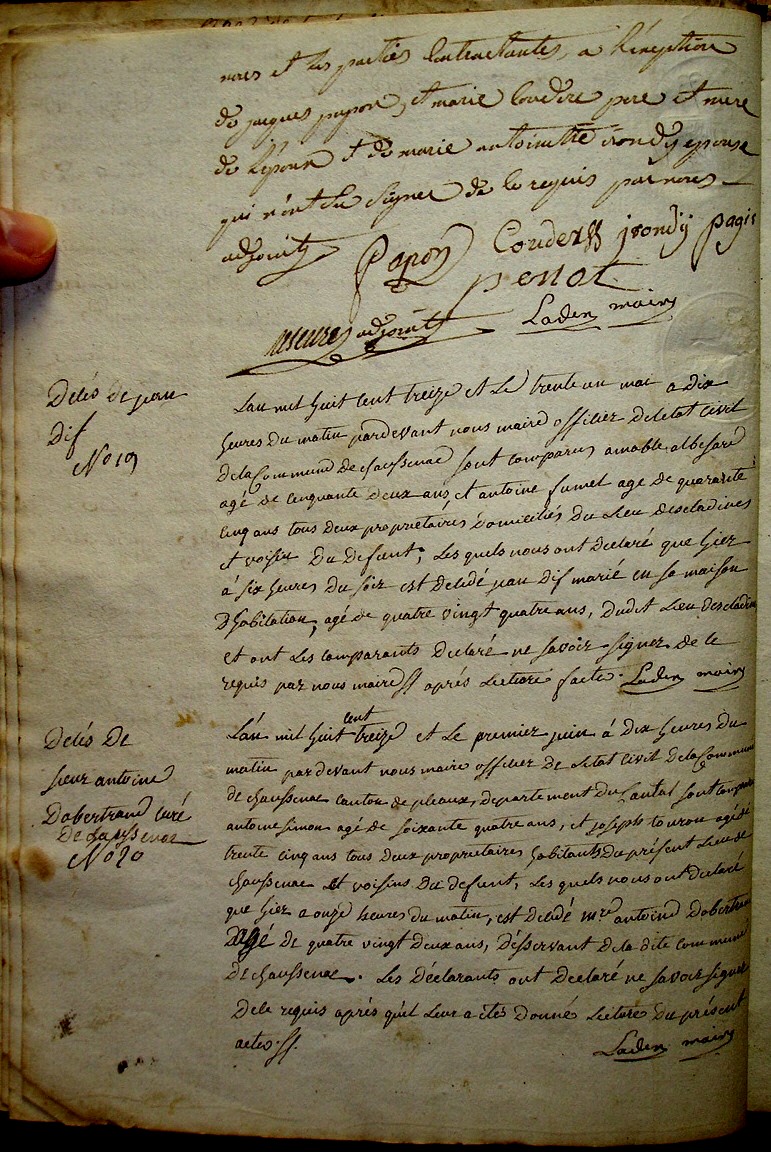 nous et les parties Contractantes, a l'éxeption
de jacques papon, et marie Couderc pere et mere
de l'époux et de marie antoinette irondy epouse
qui n'ont su signer de ce requis par nous
adjoint
Papon Couderc jrondy pagis
penot
adjoint Laden maire
Décés de jean
Dif
No 19
Lan mil huit Cent treize et Le trente un mai a dix
heures du matin pardevant nous maire officier Deletat Civil
dela Commune de chaussenac sont comparus amable albessard
agé de Cinquante deux ans, et antoine fumel age de quarante
Cinq ans tous deux propriétaires domiciliés du Lieu descladines
et voisin du defunt, Les quels nous ont declaré que hier
à six heures du soir est décédé jean dif marié en sa maison
D'habitation, agé de quatre vingt quatre ans, dudit Lieu descladines
et ont Les comparants declaré ne savoir signer de ce
requis par nous maire aprés Lecture faite. Laden maire
Décés De
sieur antoine
Dabertrand curé
de chaussenac
No 20
L'an mil huit cent treize et Le premier juin à dix heures du
matin pardevant nous maire officier de Letat Civil dela Commune
de chaussenac canton de pleaux, departement du Cantal sont comparus
antoine simon agé de soixante quatre ans, et joseph touron agé de
trente cinq ans tous deux propriétaires habitants du présent Lieu de
chaussenac et voisins du defunt, Les quels nous ont declaré
que hier a onze heures du matin, est décédé mre antoine Dabertrand
agé de quatre vingt deux ans, Désservant de la dite commune
De chaussenac. Les Déclarants ont declaré ne savoir signer
De ce requis aprés qu'il Leur a étés donné Lecture du présent
actes. Laden maire